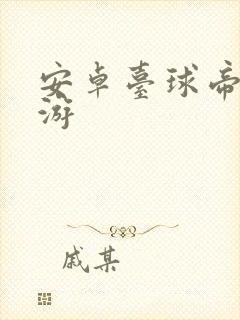 安卓臺球帝
游
戚某